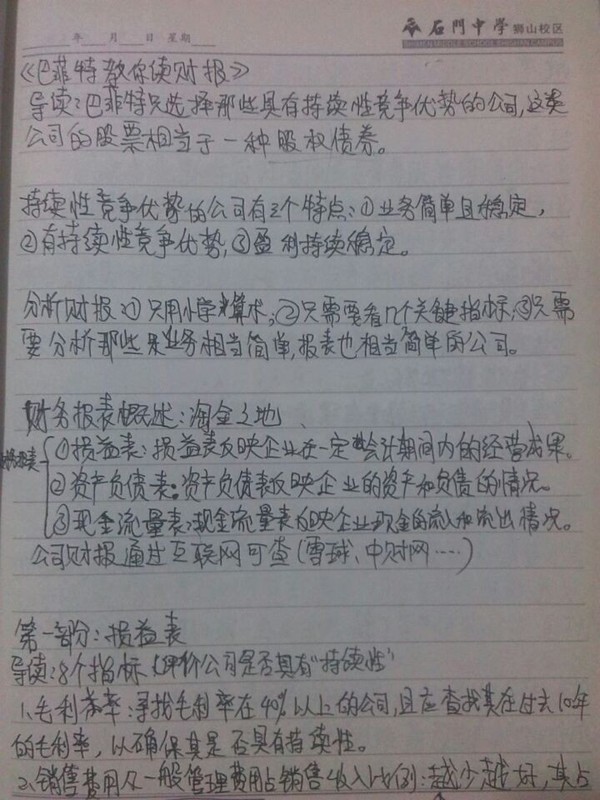 年 月 日 星期
石門中学 狮山校区
SHIMEN MIDDLE SCHOOL SHISHAN CAMPUS
《巴菲特教你读财报》
导读:巴菲特只选择那些具有持续性竞争优势的公司,这类
公司的股票相当于一种股权债券。
持续性竞争优势的公司有三个特点:①业务简单且稳定,
②有持续性竞争优势,③盈利持续稳定。
分析财报:①只用小学算术;②只需要看几个关键指标;③只需
要分析那些业务相当简单,报表也相当简单的公司。
财务报表概述:淘金之地
①损益表:损益表反映企业在一定会计期间内的经营成果。
②资产负债表:资产负债表反映企业的资产和负债的情况。
③现金流量表:现金流量表反映企业现金的流入和流出情况。
公司财报通过互联网可查(雪球、中财网……)
第一部分:损益表
导读:8个指标评价公司是否具有"持续性"
1、毛利率:寻找毛利率在40%以上的公司,且应查找其在过去10年
的毛利率,以确保其是否具有持续性。
2、销售费用及一般管理费用占销售收入比例:越少越好,其占